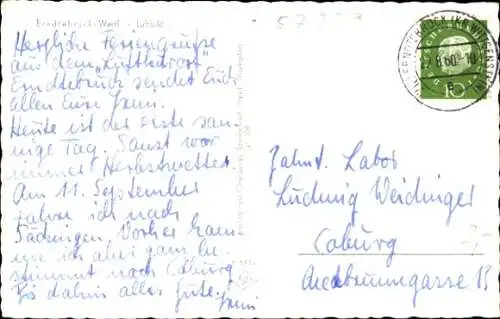 Erndtebrück-Westf. - Luftbild
57 339
Herzliche Feriengrüße
aus dem "Luftkurort"
Erndtebrück sendet Euch
allen Eure Jenni.
Heute ist der erste son-
nige Tag. Sonst war
immer Herbstwetter.
Am 11. September
fahre ich nach
Säckingen. Vorher kom-
me ich aber ganz be-
stimmt nach Coburg
Bis dahin alles Gute.
ERNDTEBRÜCK (KR WITTGENSTEIN)
.8.60-10
e
10
Zahnt. Labor
Ludwig Weidinger
Coburg
Judenbrunngasse 13